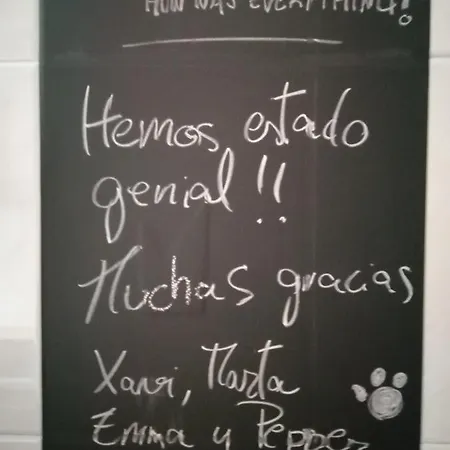 HOW WAS EVERYTHING?!
Hemos estado
genial!!
Muchas gracias
Xavi, Marta
Emma y Pepper